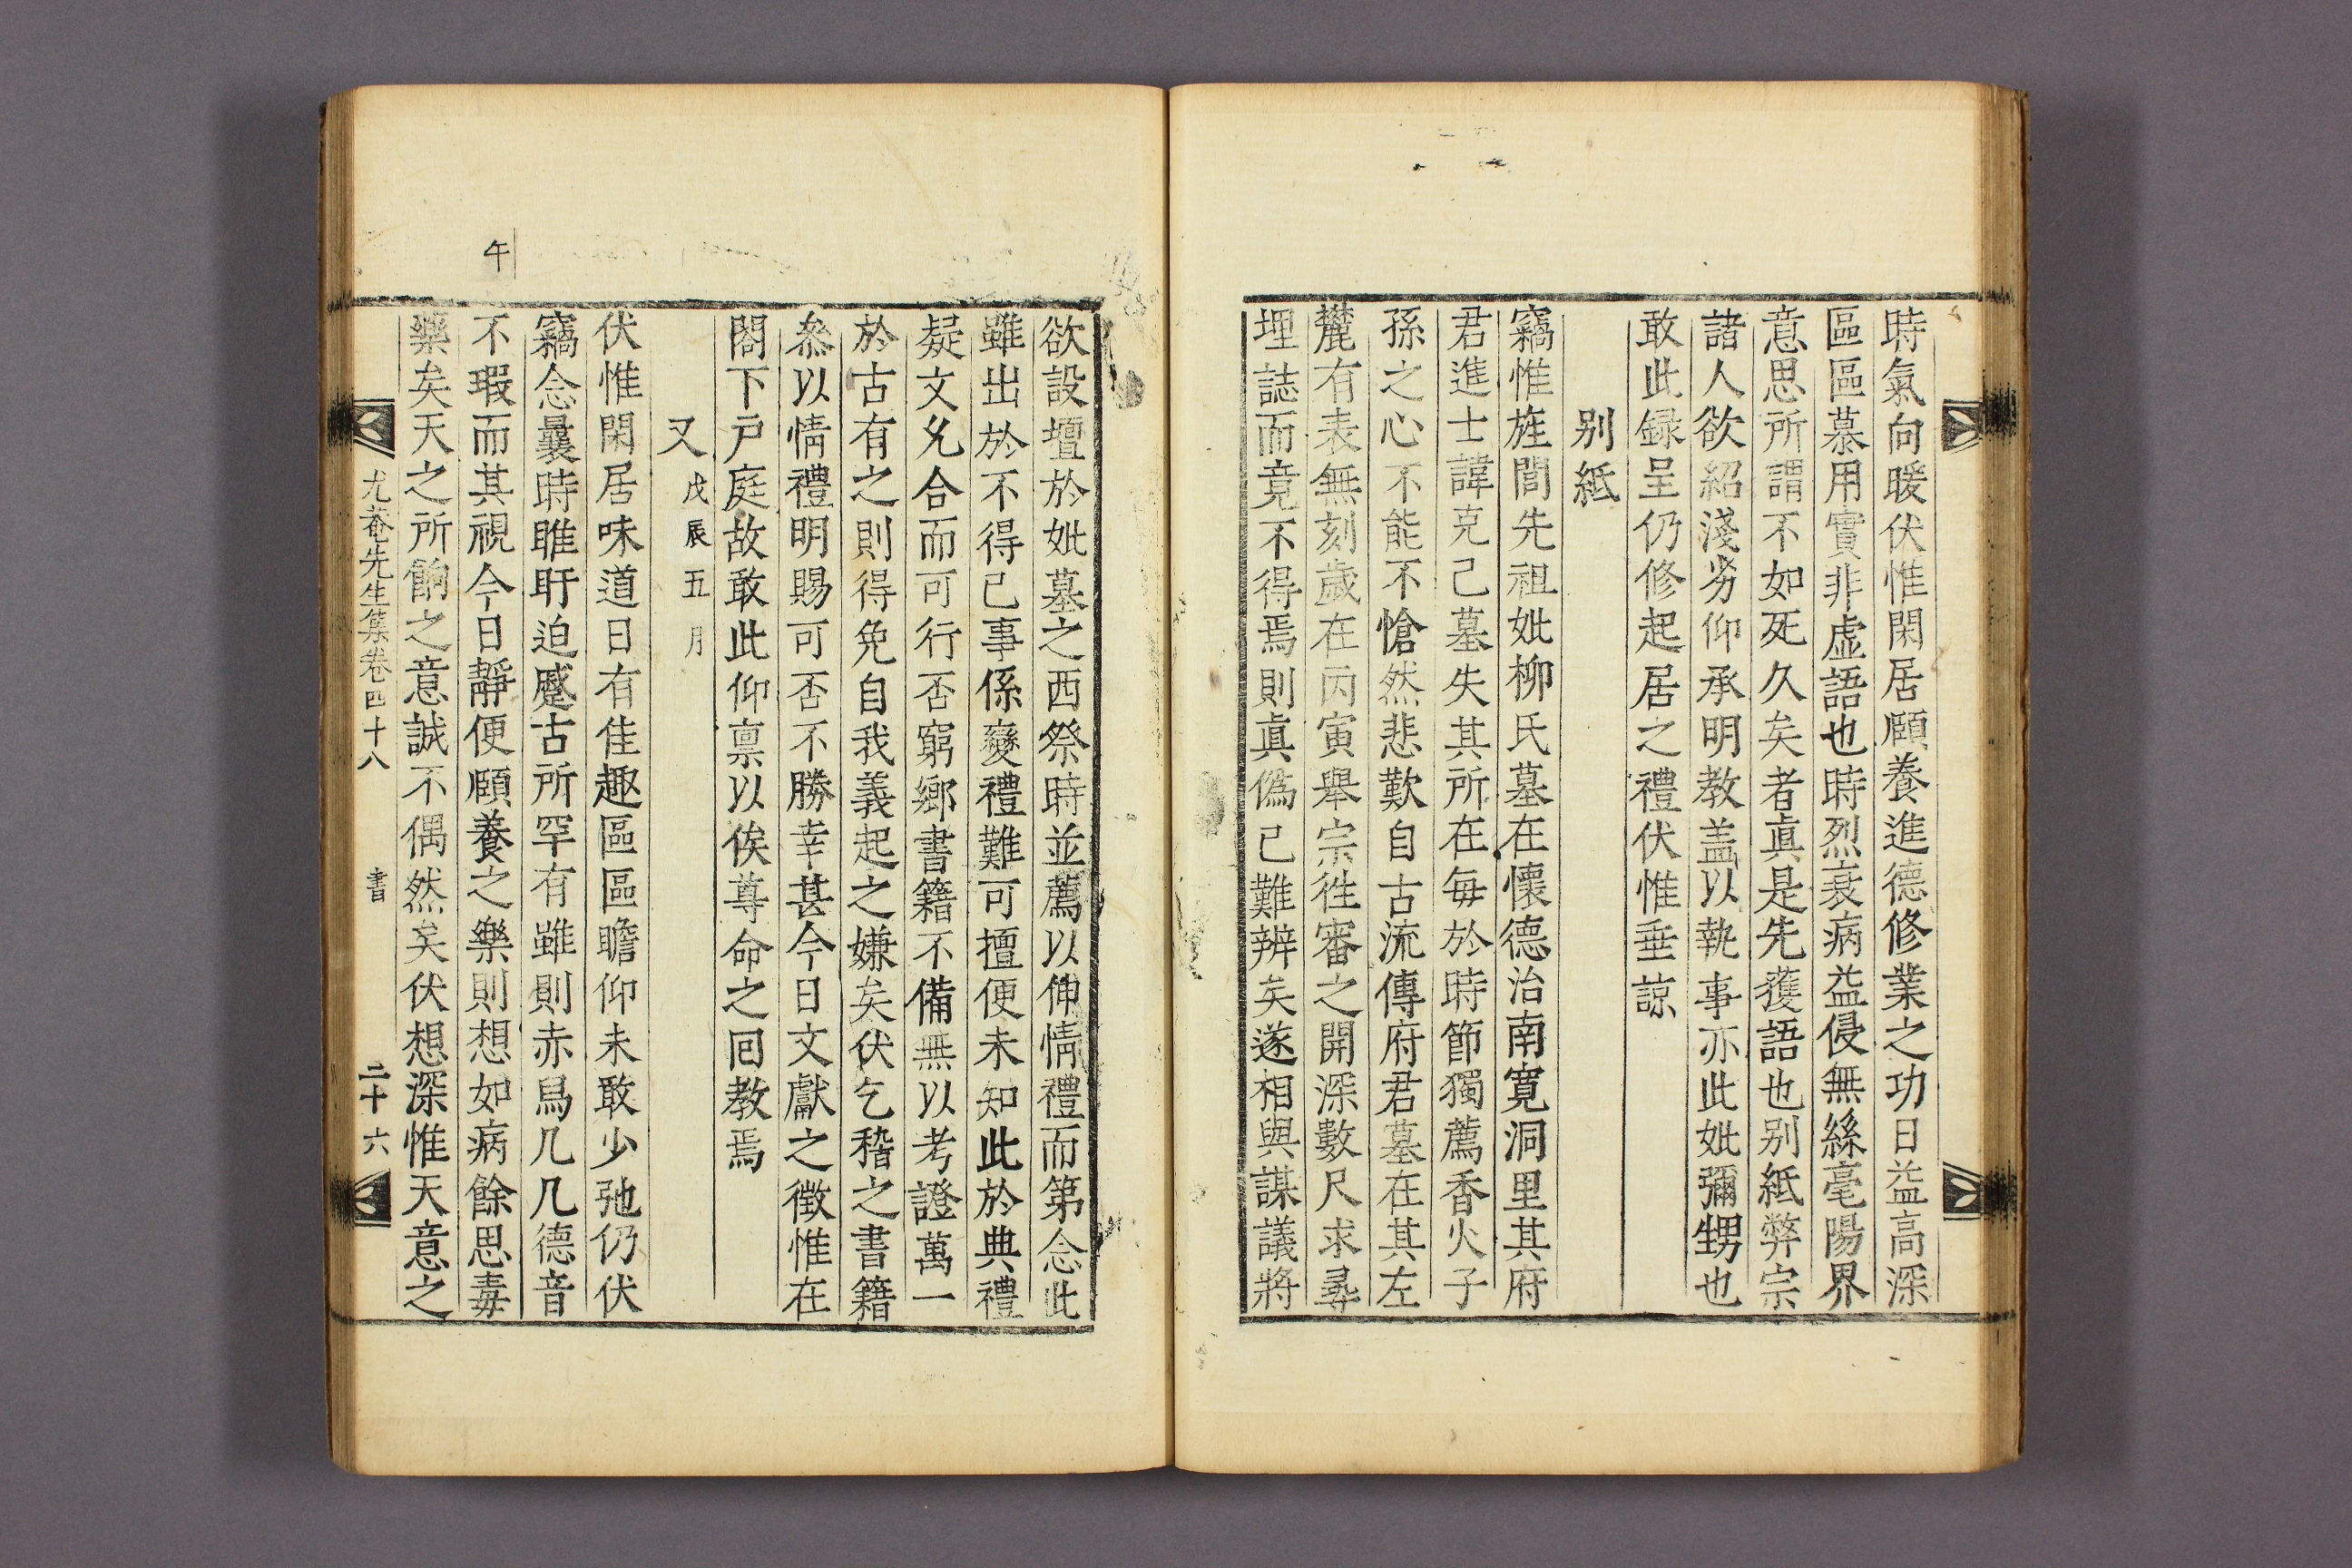 時氣向暖伏惟閑居頤養進德修業之功日益高深
區區慕用實非虛語也時烈衰病益侵無絲毫陽界
意思所謂不如死久矣者眞是先獲語也別紙弊宗
諸人欲紹淺劣仰承明教盖以執事亦此妣彌甥也
敢此録呈仍修起居之禮伏惟垂諒
別紙
竊惟旌閭先祖妣柳氏墓在懷德治南寬洞里其府
君進士諱克己墓失其所在每於時節獨薦香火子
孫之心不能不愴然悲歎自古流傳府君墓在其左
麓有表無刻歲在丙寅舉宗徃審之開深數尺求尋
埋誌而竟不得焉則眞僞已難辨矣遂相與謀議將
欲設壇於妣墓之西祭時並薦以伸情禮而第念此
雖出於不得已事係變禮難可擅便未知此於典禮
疑文允合而可行否窮鄉書籍不備無以考證萬一
於古有之則得免自我義起之嫌矣伏乞稽之書籍
叅以情禮明賜可否不勝幸甚今日文獻之徵惟在
閤下戶庭故敢此仰禀以俟尊命之回教焉
又戊辰五月
伏惟閑居味道日有佳趣區區瞻仰未敢少弛仍伏
竊念曩時睢盱迫蹙古所罕有雖則赤舃几几德音
不瑕而其視今日靜便頤養之樂則想如病餘思毒
藥矣天之所餉之意誠不偶然矣伏想深惟天意之
午
尤菴先生集卷四十八
書
二十六